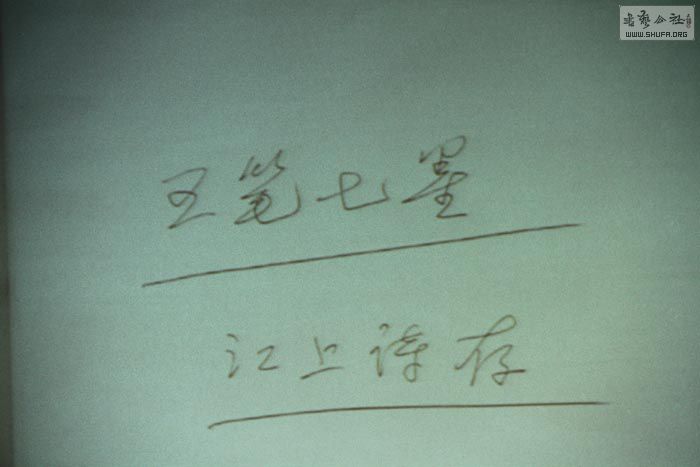 书艺公社
WWW.SHUFA.ORG
王笔七星
江上诗存